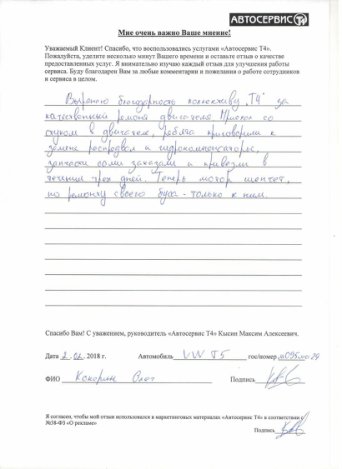 АВТОСЕРВИС Т4
Мне очень важно Ваше мнение!
Уважаемый Клиент! Спасибо, что воспользовались услугами «Автосервис Т4».
Пожалуйста, уделите несколько минут Вашего времени и оставьте отзыв о качестве
предоставленных услуг. Я внимательно изучаю каждый отзыв для улучшения работы
сервиса. Буду благодарен Вам за любые комментарии и пожелания о работе сотрудников
и сервиса в целом.
Выражаю благодарность коллективу „Т4" за
качественный ремонт двигателя. Приехал со
стуком в двигателе, ребята приговорили к
замене распредвал и гидрокомпенсаторы,
запчасти сами заказали и привезли в
течении трех дней. Теперь мотор шепчет,
по ремонту своего буса - только к ним.
Спасибо Вам! С уважением, руководитель «Автосервис Т4» Кысин Максим Алексеевич.
Дата 2.02.2018 г. Автомобиль VW T5 гос/номер 095 29
ФИО Кокорин Олег Подпись
Я согласен, чтобы мой отзыв использовался в маркетинговых материалах «Автосервис Т4» в соответствии с
№38-ФЗ «О рекламе»
Подпись